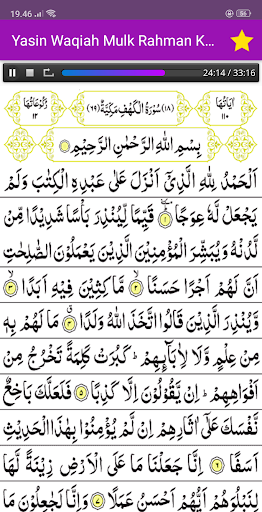 19.46
Yasin Waqiah Mulk Rahman K...
24:14 / 33:16
رُكُوْعَاتُهَا ١٢ (١٨) سُوْرَةُ الْكَهْفِ مَكِّيَّةٌ (٦٩) اٰيَاتُهَا ١١٠
بِسْمِ اللّٰهِ الرَّحْمٰنِ الرَّحِيْمِ
اَلْحَمْدُ لِلّٰهِ الَّذِيْٓ اَنْزَلَ عَلٰى عَبْدِهِ الْكِتٰبَ وَلَمْ
يَجْعَلْ لَّهٗ عِوَجًا ۱ قَيِّمًا لِّيُنْذِرَ بَاْسًا شَدِيْدًا مِّنْ
لَّدُنْهُ وَيُبَشِّرَ الْمُؤْمِنِيْنَ الَّذِيْنَ يَعْمَلُوْنَ الصّٰلِحٰتِ
اَنَّ لَهُمْ اَجْرًا حَسَنًا ۲ مَّاكِثِيْنَ فِيْهِ اَبَدًا ۳
وَّيُنْذِرَ الَّذِيْنَ قَالُوا اتَّخَذَ اللّٰهُ وَلَدًا ۴ مَا لَهُمْ بِهٖ
مِنْ عِلْمٍ وَّلَا لِاٰبَآئِهِمْ ؕ كَبُرَتْ كَلِمَةً تَخْرُجُ مِنْ
اَفْوَاهِهِمْ ؕ اِنْ يَّقُوْلُوْنَ اِلَّا كَذِبًا ۵ فَلَعَلَّكَ بَاخِعٌ
نَّفْسَكَ عَلٰٓى اٰثَارِهِمْ اِنْ لَّمْ يُؤْمِنُوْا بِهٰذَا الْحَدِيْثِ
اَسَفًا ۶ اِنَّا جَعَلْنَا مَا عَلَى الْاَرْضِ زِيْنَةً لَّهَا
لِنَبْلُوَهُمْ اَيُّهُمْ اَحْسَنُ عَمَلًا ۷ وَاِنَّا لَجٰعِلُوْنَ مَا